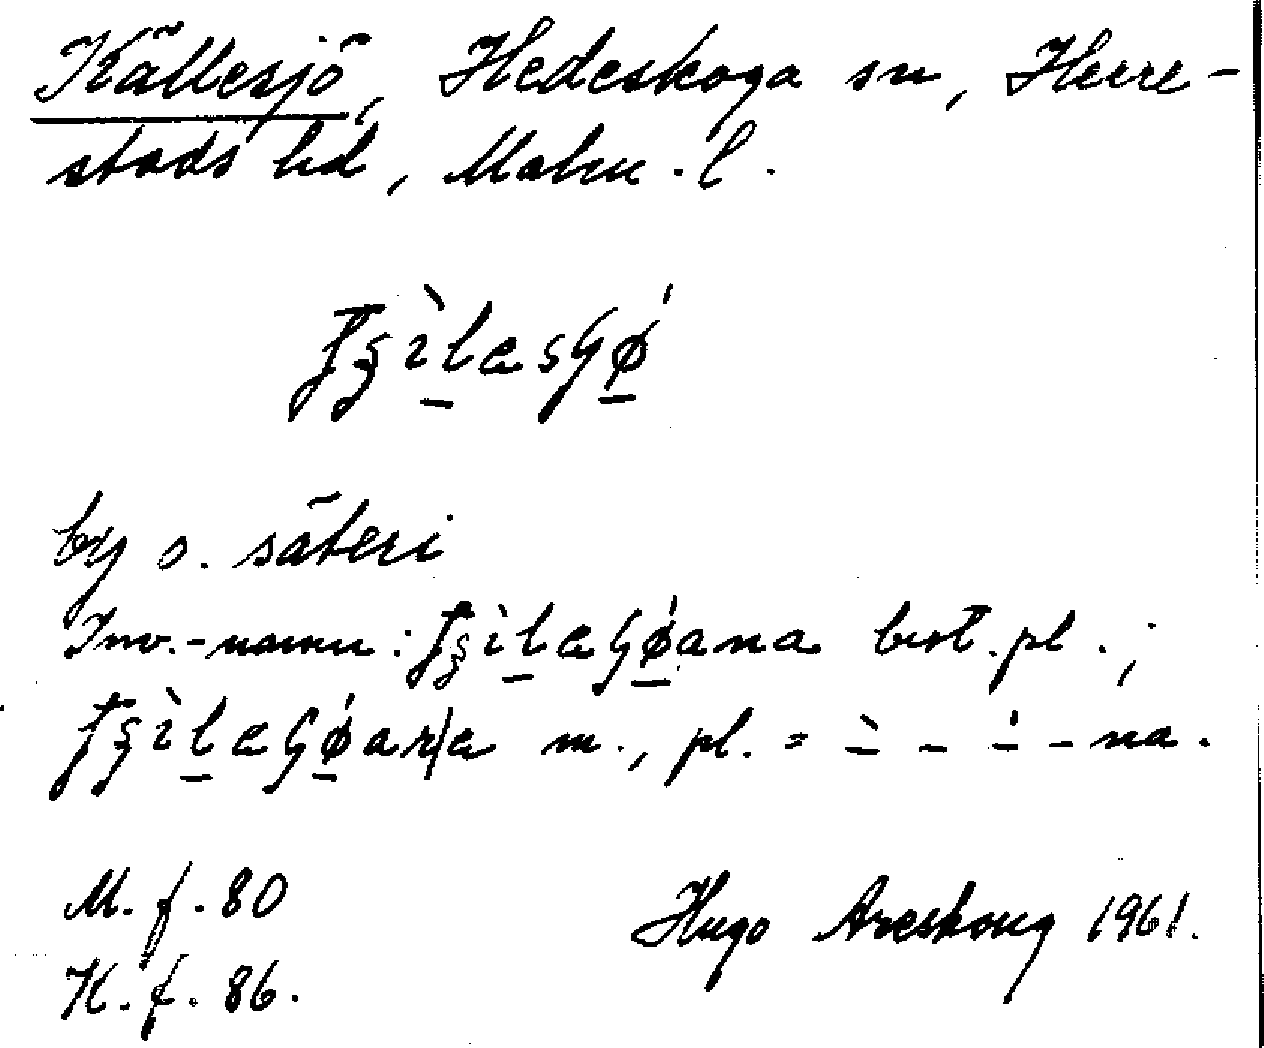 Källesjö, Hedeskoga sn, Herre-
stads hd, Malm. l.
by o. säteri
Inv.-namn: best. pl.;
m., pl. = -na.
M. f. 80
K. f. 86.
Hugo Areskoug 1961.